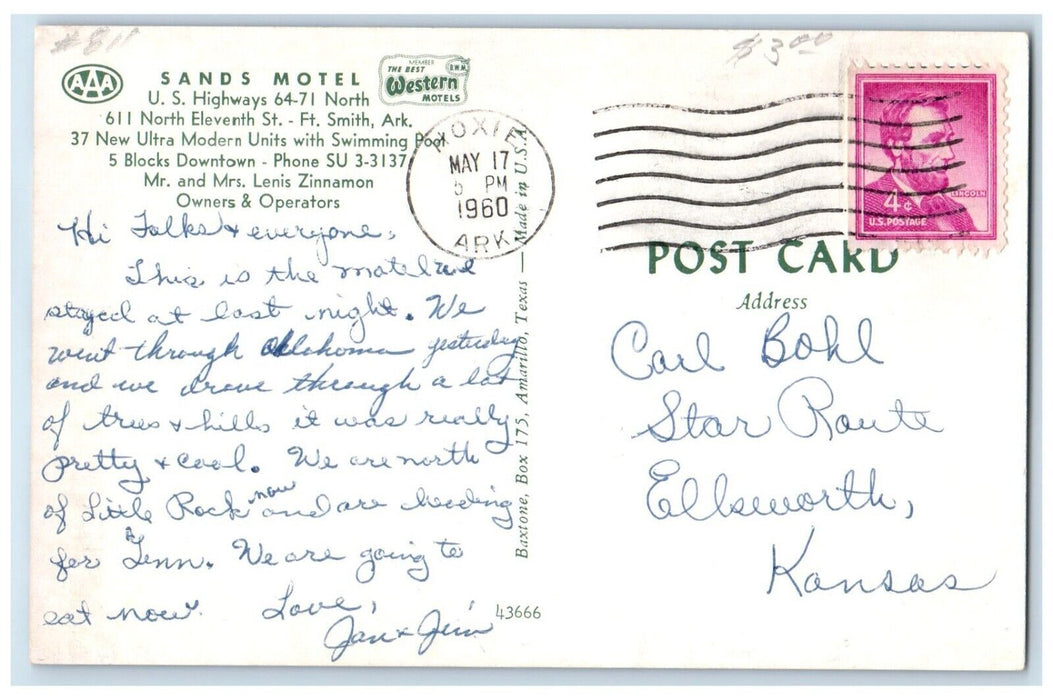 #811
$3.00
AAA
SANDS MOTEL
U. S. Highways 64-71 North
611 North Eleventh St. - Ft. Smith, Ark.
37 New Ultra Modern Units with Swimming Pool
5 Blocks Downtown - Phone SU 3-3137
Mr. and Mrs. Lenis Zinnamon
Owners & Operators
MEMBER
THE BEST
B.W.M.
Western
MOTELS
HOXIE
MAY 17
5 PM
1960
ARK
LINCOLN
4¢
U.S. POSTAGE
Hi Folks & everyone,
This is the motel we
stayed at last night. We
went through Oklahoma yesterday
and we drove through a lot
of trees & hills it was really
pretty & cool. We are north
of Little Rock now and are heading
for Tenn. We are going to
eat now.
Love,
Jan & Jim
43666
Baxtone, Box 175, Amarillo, Texas — Made in U.S.A.
POST CARD
Address
Carl Bohl
Star Route
Ellsworth,
Kansas